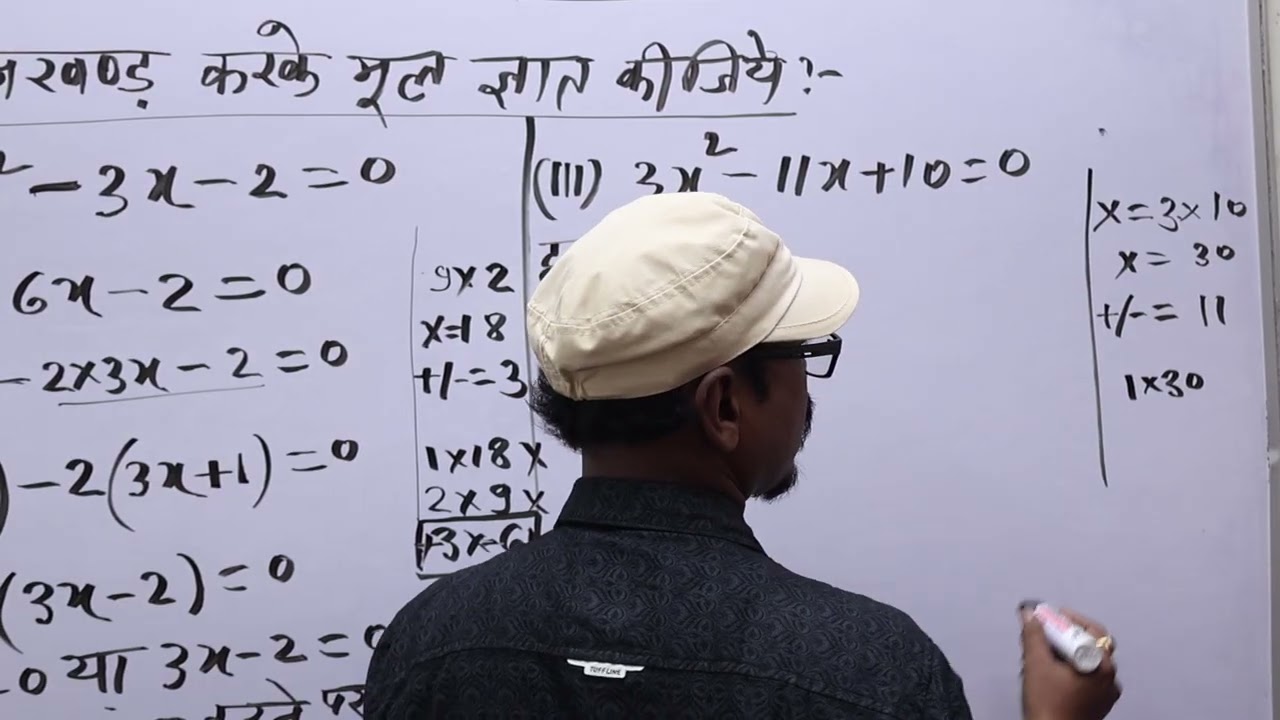 करके मूल ज्ञात कीजिये:-
- 3x - 2 = 0
6x - 2 = 0
- 2×3x - 2 = 0
) - 2(3x+1) = 0
(3x - 2) = 0
0 या 3x - 2 = 0
9×2
x=18
+/- = 3
1×18 x
2×9 x
+3x-6
(III) 3x² - 11x + 10 = 0
x = 3×10
x = 30
+/- = 11
1×30
TOFFLINE